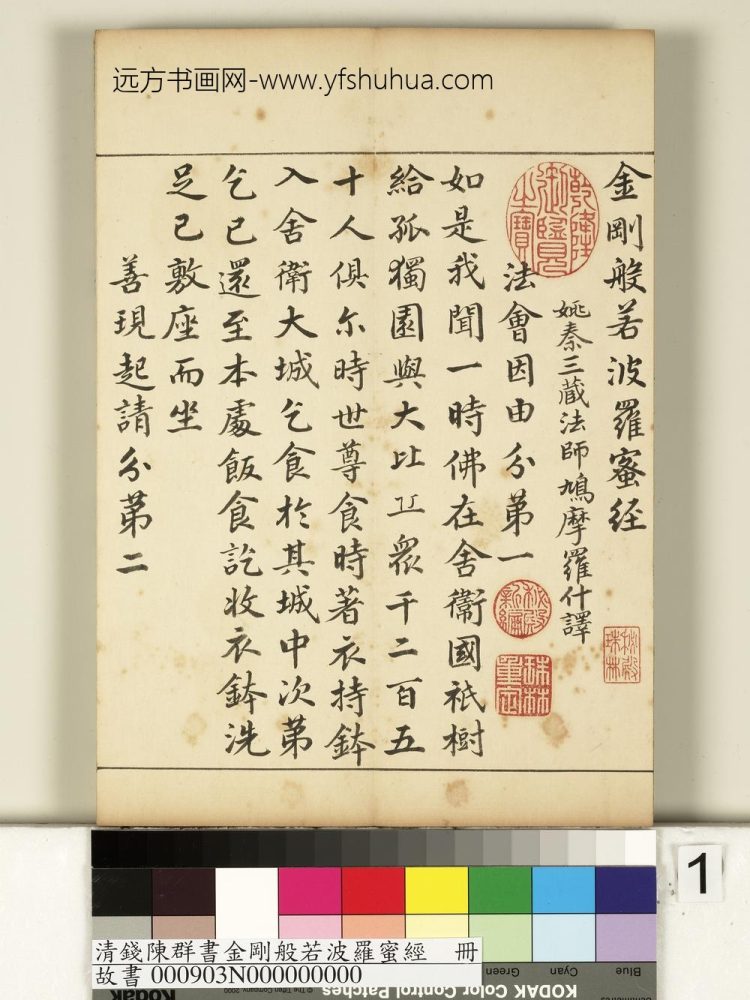 远方书画网-www.yfshuhua.com
金剛般若波羅蜜经
姚秦三藏法師鳩摩羅什譯
法會因由分第一
如是我聞一時佛在舍衛國祇樹
給孤獨園與大比丘眾千二百五
十人俱尔時世尊食時著衣持鉢
入舍衛大城乞食於其城中次第
乞已還至本處飯食訖收衣鉢洗
足已敷座而坐
善現起請分第二
乾隆御覽之寶
秘殿新編
珠林重定
秘殿珠林
1
清錢陳群書金剛般若波羅蜜經 冊
故書 000903N000000000
© The Tiffen Company, 2000
KODAK Color Control Patches
Blue
Cyan
Green